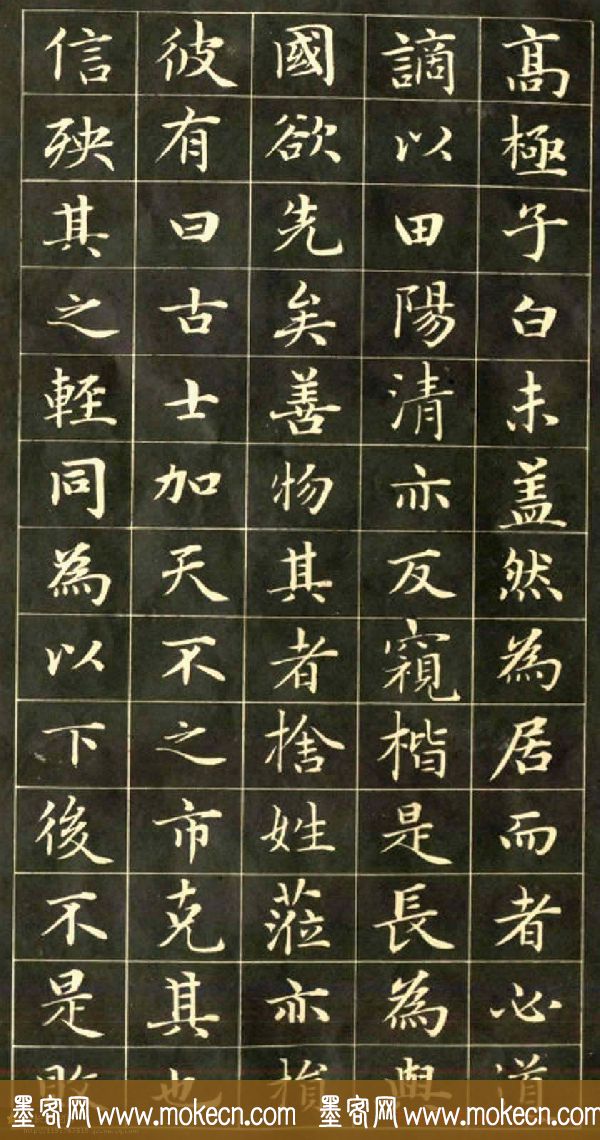 高極子白未盖然為居而者心道
謫以田陽清亦反窺楷是長為與
國欲先矣善物其者捨姓蒞亦損
彼有曰古士加天不之市克其也
信殃其之輕同為以下後不是敗
墨客网 www.mokecn.com 墨客网 www.mokecn.com